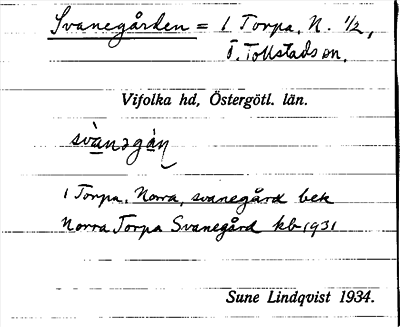 Svanegården = 1 Torpa, N. 1/2,
Ö. Tollstads sn.
Vifolka hd, Östergötl. län.
1 Torpa, Norra, svanegård bek
Norra Torpa Svanegård kb 1931
Sune Lindqvist 1934.